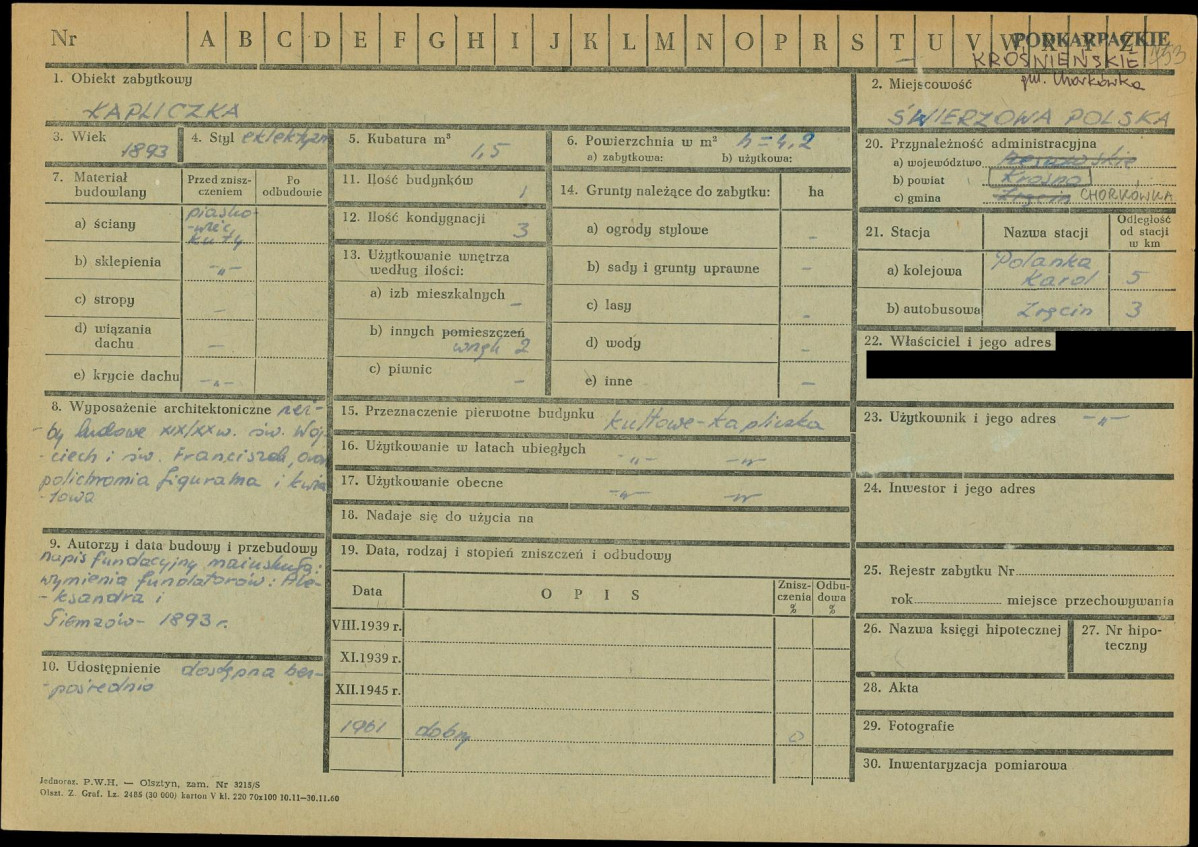 Nr A B C D E F G H I J K L M N O P R S T U V W R Y Z
PODKARPACKIE
KROŚNIEŃSKIE 453
gm. Chorkówka
1. Obiekt zabytkowy
KAPLICZKA
2. Miejscowość
ŚWIERZOWA POLSKA
3. Wiek
1893
4. Styl eklektyzm
5. Kubatura m³
1,5
6. Powierzchnia w m² h = 4,2
a) zabytkowa: b) użytkowa:
7. Materiał budowlany
Przed zniszczeniem
Po odbudowie
a) ściany
piasko-
-wiec,
kuty
b) sklepienia -„-
c) stropy -
d) wiązania dachu -
e) krycie dachu -„-
8. Wyposażenie architektoniczne rzeź-
by ludowe XIX/XX w. św. Woj-
-ciech i św. Franciszek, oraz
polichromia figuralna i kwia-
-towa
9. Autorzy i data budowy i przebudowy
napis fundacyjny majuskułą:
wymienia fundatorów: Ale-
-ksandra i
1893 r.
10. Udostępnienie dostępna bez-
-pośrednio
11. Ilość budynków 1
12. Ilość kondygnacji 3
13. Użytkowanie wnętrza
według ilości:
a) izb mieszkalnych -
b) innych pomieszczeń
wnęk 2
c) piwnic -
14. Grunty należące do zabytku: ha
a) ogrody stylowe -
b) sady i grunty uprawne -
c) lasy -
d) wody -
e) inne -
15. Przeznaczenie pierwotne budynku
kultowe - kapliczka
16. Użytkowanie w latach ubiegłych
-„- -„-
17. Użytkowanie obecne
-„- -„-
18. Nadaje się do użycia na
19. Data, rodzaj i stopień zniszczeń i odbudowy
Data OPIS Zniszczenia % Odbudowa %
VIII.1939 r.
XI.1939 r.
XII.1945 r.
1961 dobry 0
20. Przynależność administracyjna
a) województwo Rzeszowskie
b) powiat Krosno
c) gmina Zręcin CHORKÓWKA
21. Stacja Nazwa stacji Odległość od stacji w km
a) kolejowa Polanka
Karol 5
b) autobusowa Zręcin 3
22. Właściciel i jego adres
23. Użytkownik i jego adres -„-
24. Inwestor i jego adres
25. Rejestr zabytku Nr
rok miejsce przechowywania
26. Nazwa księgi hipotecznej
27. Nr hipo-
teczny
28. Akta
29. Fotografie
30. Inwentaryzacja pomiarowa
Jednoraz. P.W.H. — Olsztyn, zam. Nr 3215/S
Olszt. Z. Graf. Lz. 2485 (30 000) karton V kl. 220 70x100 10.11—30.11.60